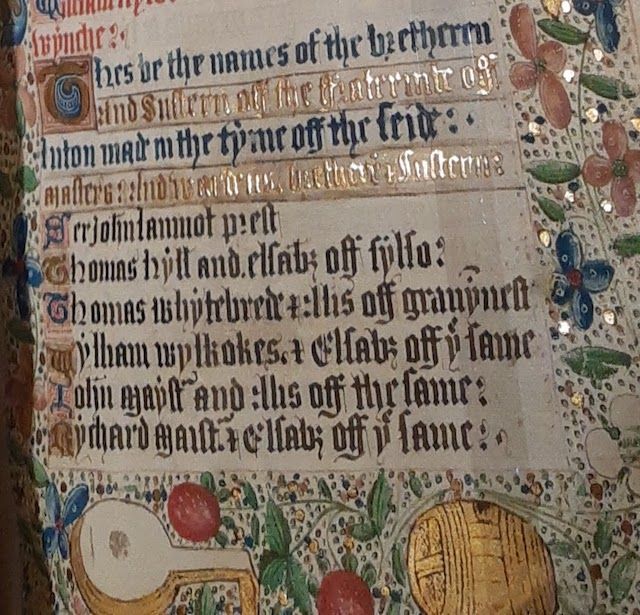 wynche :
Thes be the names of the bretheren
And Sustern off the fraternite off
luton made in the tyme off the seide :
masters : And wardens, brethere & Sustern :
Ser John lammot prest
Thomas hyll and . elsabꝫ off sylso :
Thomas whytebrede & Alis off grauynest
Wylliam wylkokes . & Elsabꝫ off yͤ same
John mayst and Alis off the same :
Rychard maist . & Elsabꝫ off yͤ same :